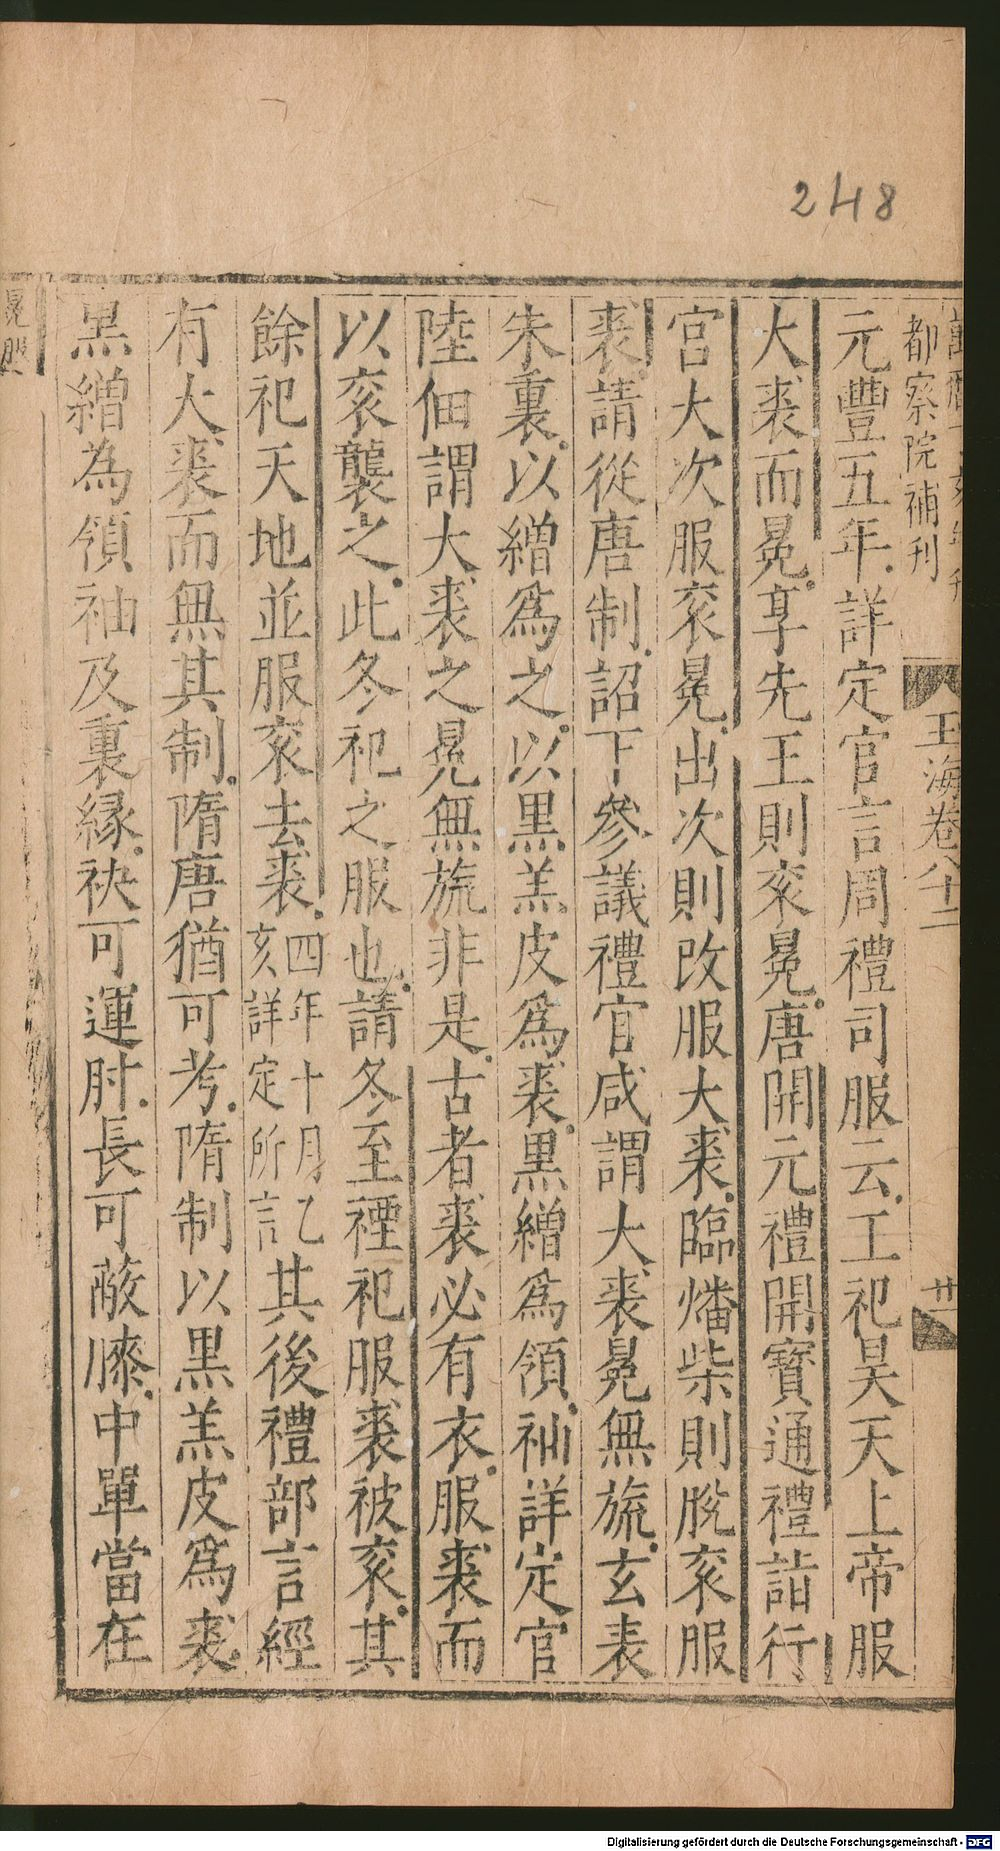 248
都察院補刊
玉海卷八十二
廿一
元豐五年詳定官言周禮司服云王祀昊天上帝服
大裘而冕享先王則衮冕唐開元禮開寶通禮詣行
宮大次服衮冕出次則改服大裘臨燔柴則脫衮服
裘請從唐制詔下參議禮官咸謂大裘冕無旒玄表
朱裏以繒爲之以黒羔皮爲裘黒繒爲領袖詳定官
陸佃謂大裘之冕無旒非是古者裘必有衣服裘而
以衮襲之此冬祀之服也請冬至禋祀服裘被衮其
餘祀天地並服衮去裘四年十月乙亥詳定所言其後禮部言經
有大裘而無其制隋唐猶可考隋制以黒羔皮爲裘
黒繒為領袖及裏緣袂可運肘長可蔽膝中單當在
冕服
Digitalisierung gefördert durch die Deutsche Forschungsgemeinschaft - DFG